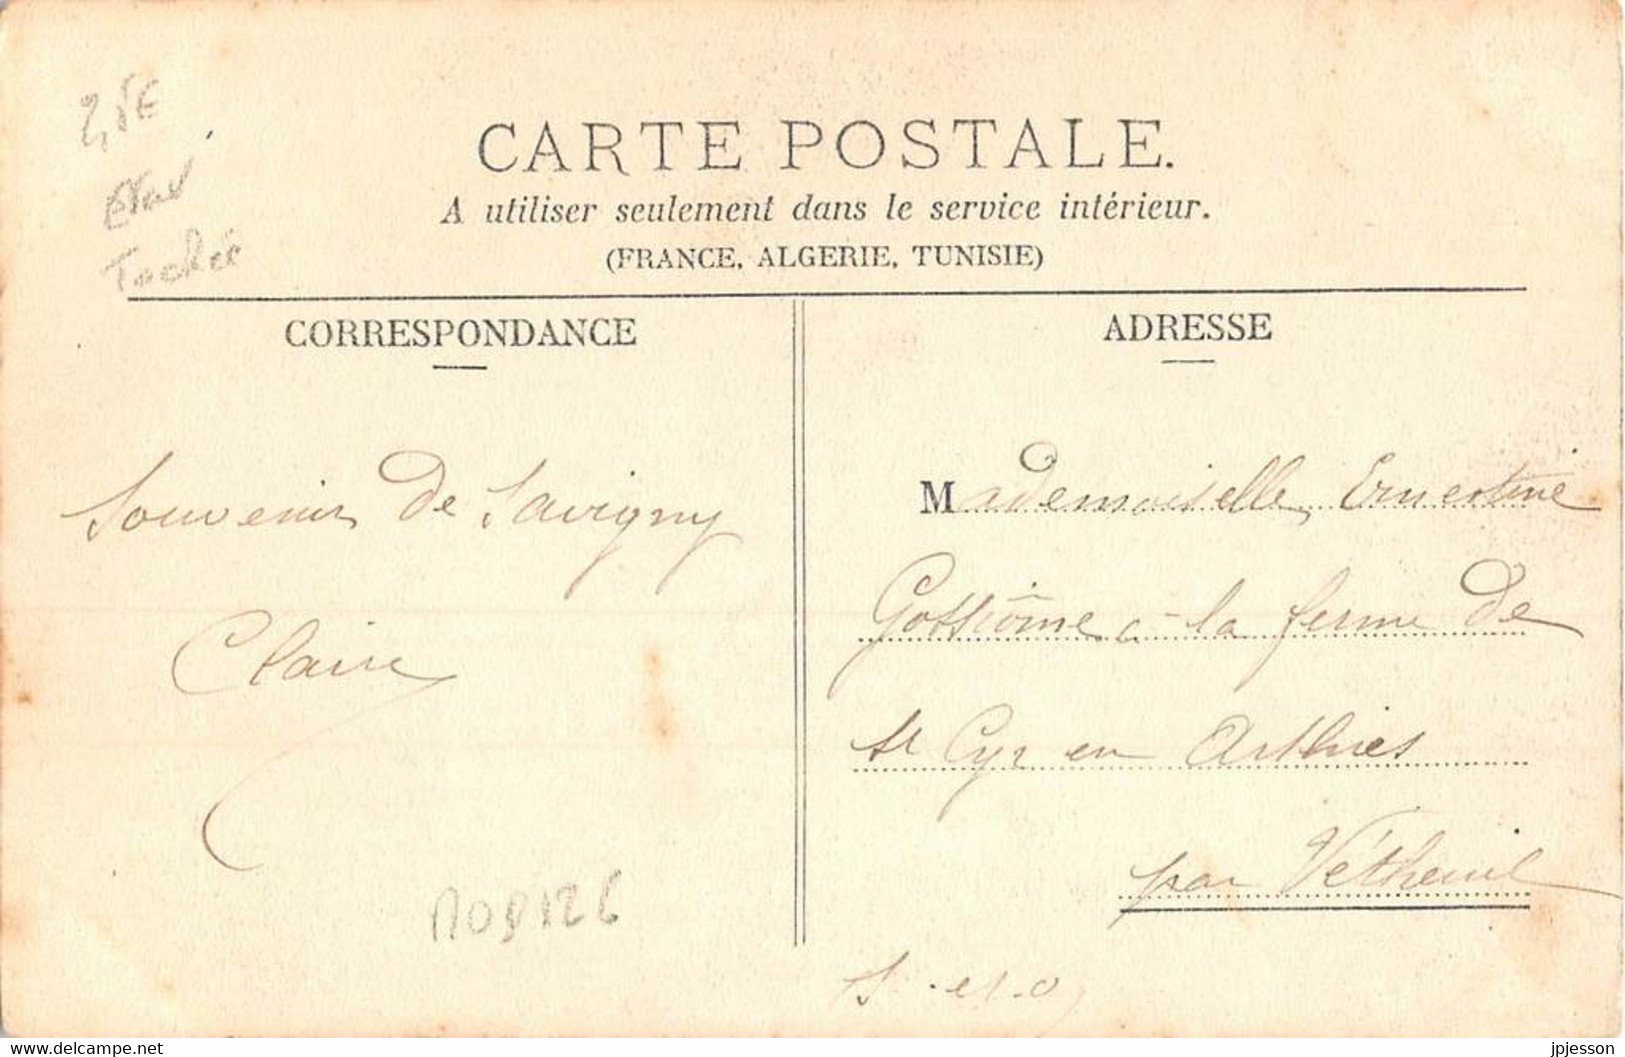 2,5€
Taché
CARTE POSTALE.
A utiliser seulement dans le service intérieur.
(FRANCE, ALGERIE, TUNISIE)
CORRESPONDANCE
Souvenir de Savigny
Claire
ADRESSE
Mademoiselle Ernestine
à la ferme de
St Cyr en Arthies
par Vétheuil
S. et. O
delcampe.net
jpjesson